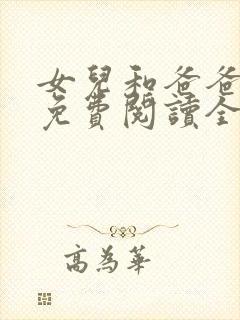 女兒和爸爸
免費閱讀全
高為華